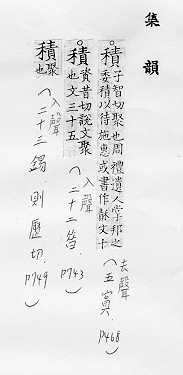 集韻
積 子智切聚也周禮遺人掌邦之
委積以待施惠或書作䅡文十
(去聲 五寘. P468)
積 資昔切說文聚
也文三十五
(入聲 二十二昔. P743)
積 聚
也
(入聲 二十三錫. 則歷切. P749)